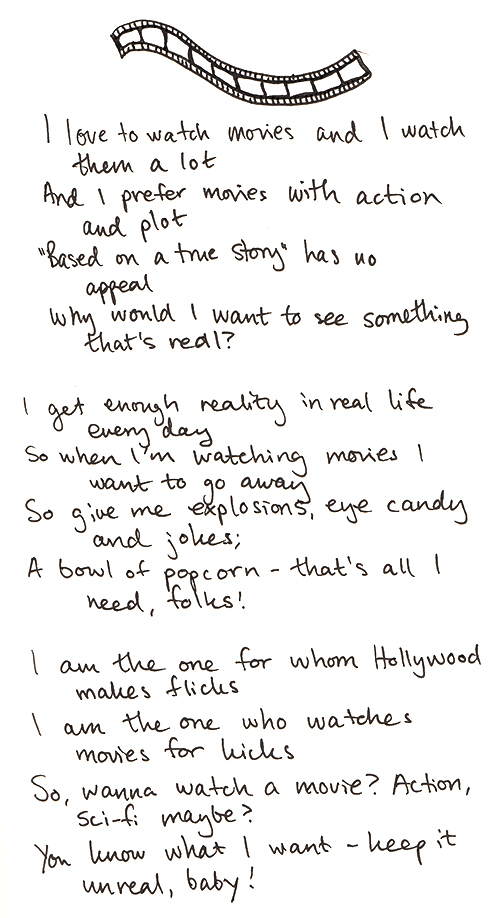 I love to watch movies and I watch
them a lot
And I prefer movies with action
and plot
"Based on a true story" has no
appeal
Why would I want to see something
that's real?
I get enough reality in real life
every day
So when I'm watching movies I
want to go away
So give me explosions, eye candy
and jokes;
A bowl of popcorn - that's all I
need, folks!
I am the one for whom Hollywood
makes flicks
I am the one who watches
movies for kicks
So, wanna watch a movie? Action,
sci-fi maybe?
You know what I want - keep it
unreal, baby!